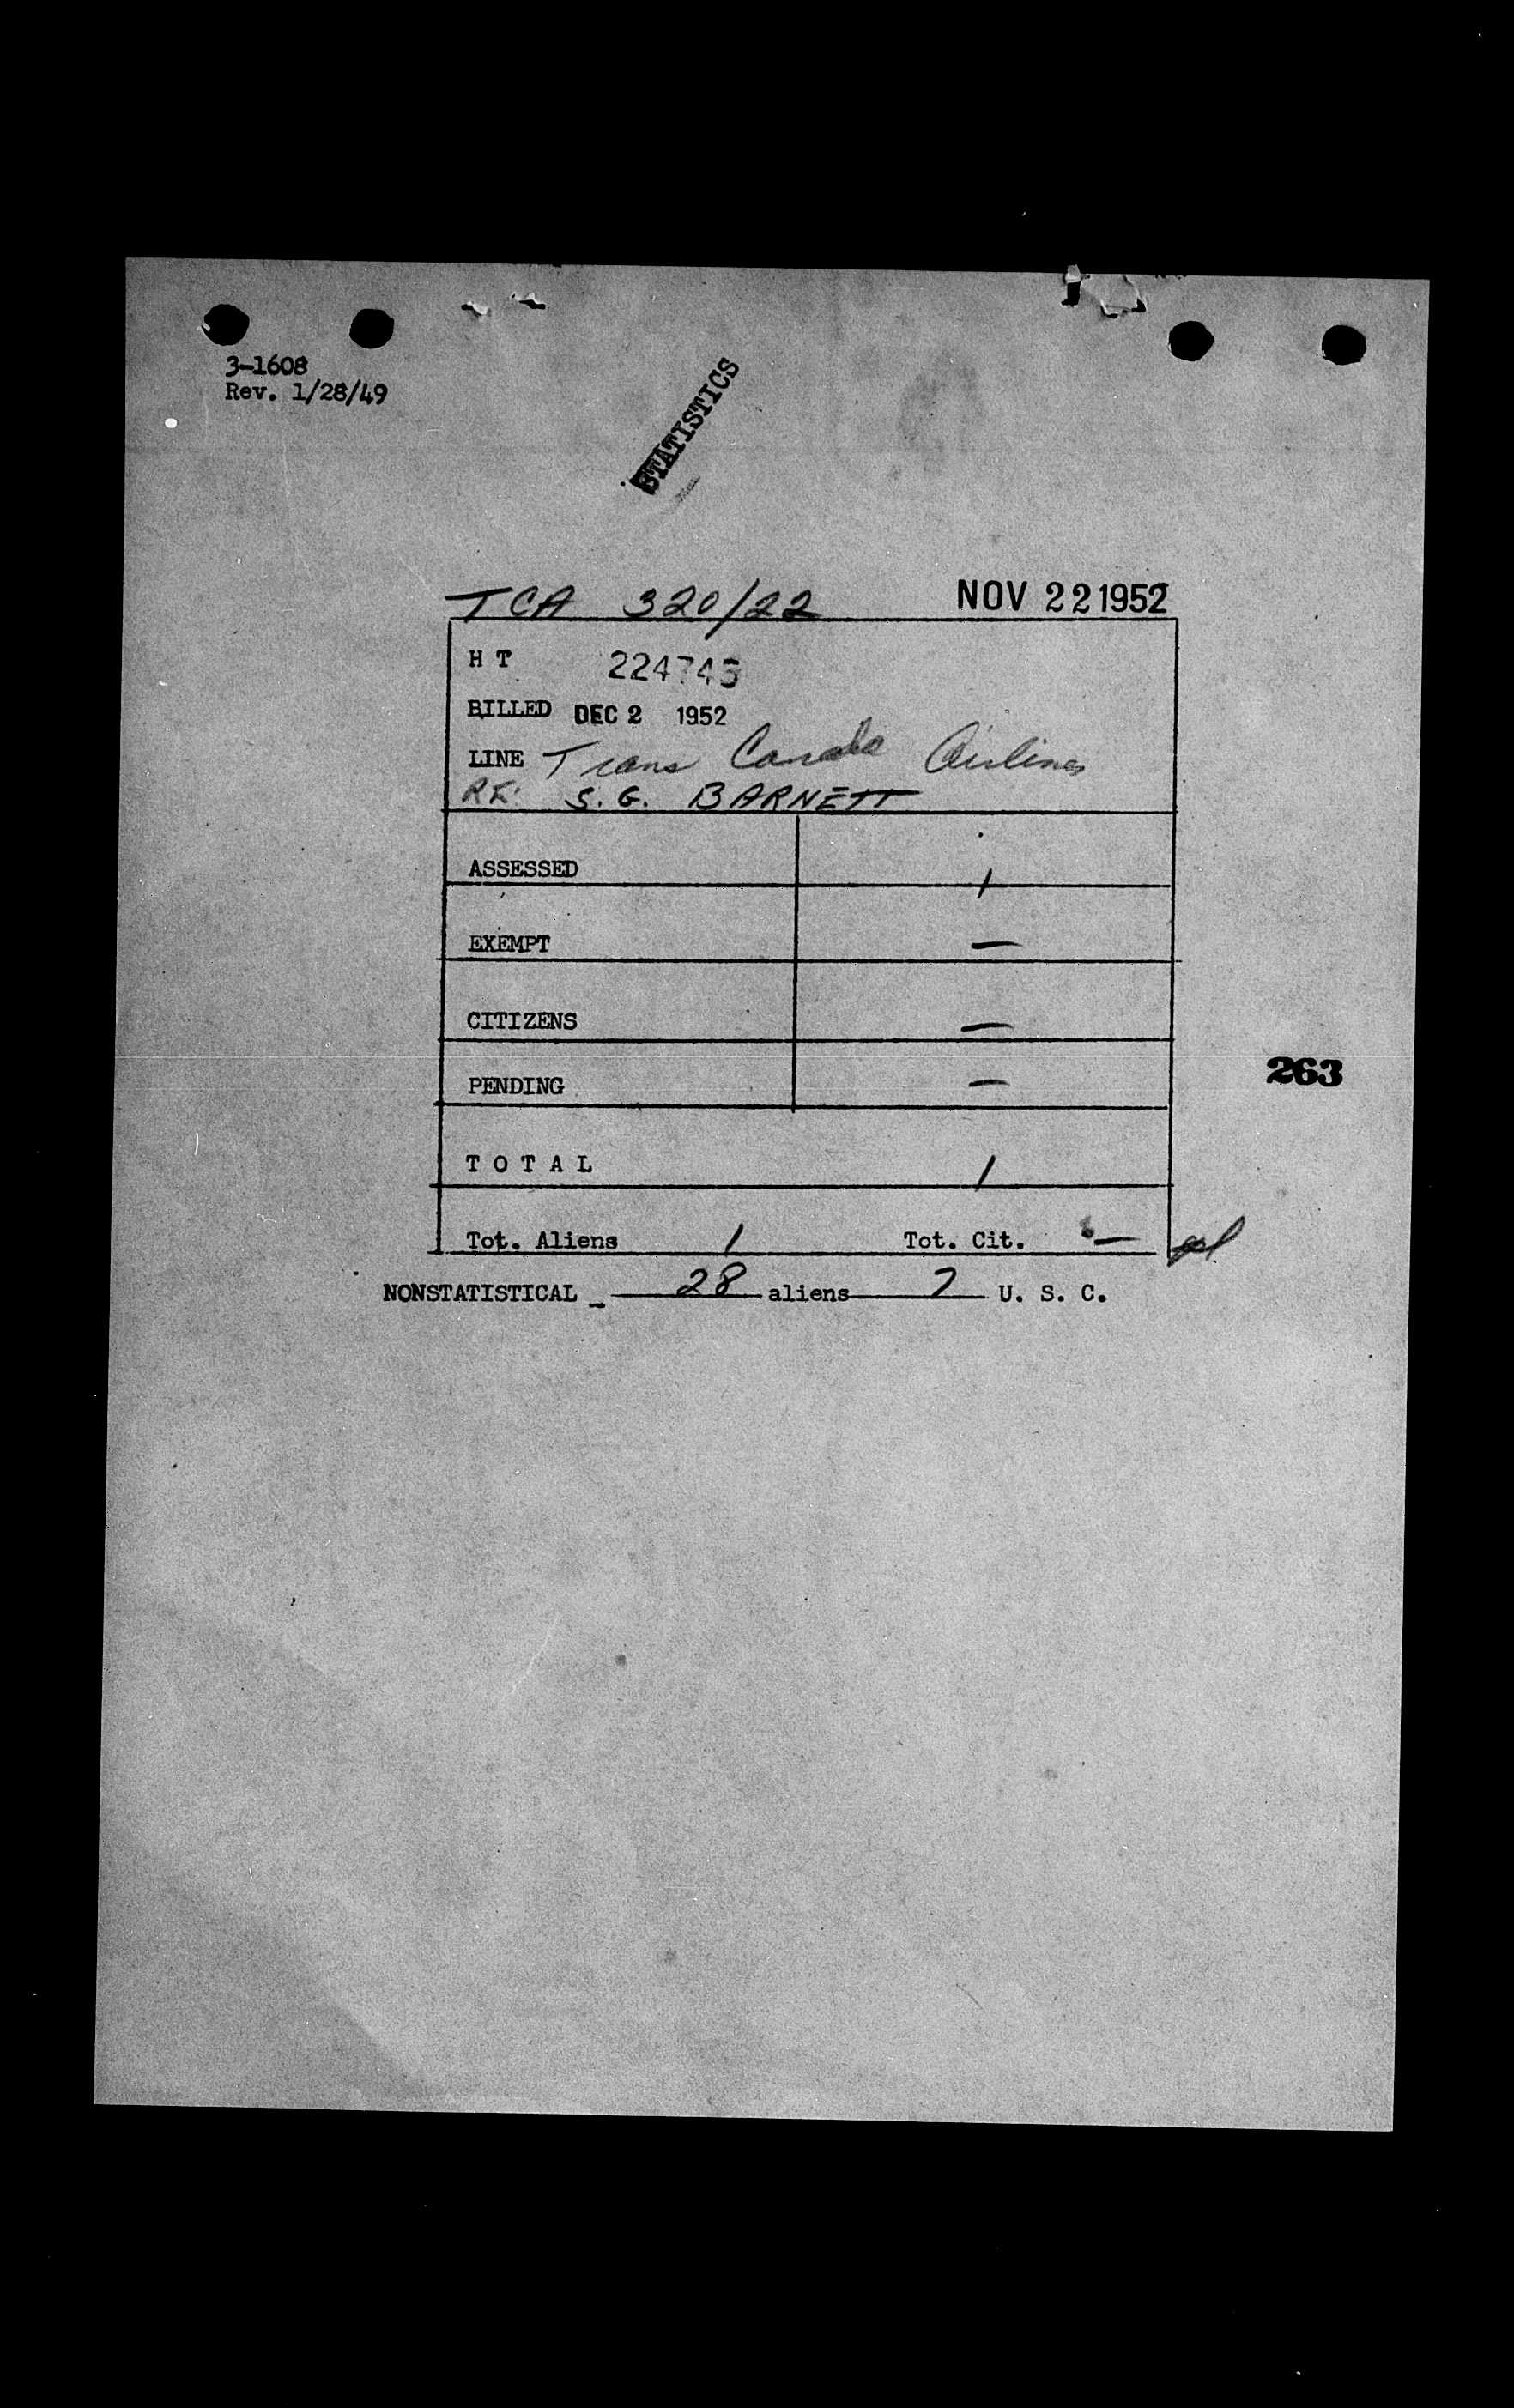 3-1608
Rev. 1/28/49
STATISTICS
TCA 320/22 NOV 22 1952
H T 224745
BILLED DEC 2 1952
LINE Trans Canada Airlines
RE: S. G. BARNETT
ASSESSED 1
EXEMPT —
CITIZENS —
263
PENDING —
T O T A L 1
Tot. Aliens 1 Tot. Cit. —
NONSTATISTICAL 28 aliens 7 U. S. C.